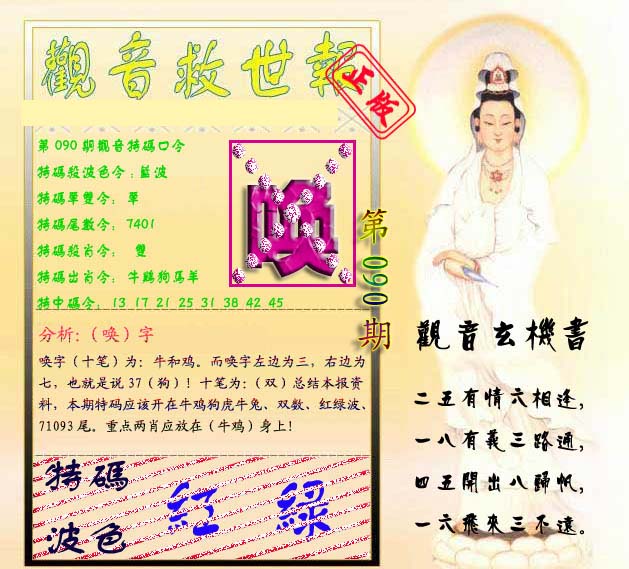 觀音救世報
正版
第 090 期觀音特碼口令
特碼殺波色令:藍波
特碼單雙令: 單
特碼尾數令: 7401
特碼殺肖令: 雙
特碼出肖令: 牛鷄狗馬羊
特中碼令: 13 17 21 25 31 38 42 45
喚
第090期
分析:（唤）字
唤字（十笔）为：牛和鸡。而唤字左边为三，右边为
七，也就是说 37（狗）！十笔为：（双）总结本报资
料，本期特码应该开在牛鸡狗虎牛兔、双数、红绿波、
71093 尾。重点两肖应放在（牛鸡）身上！
特碼
波色
紅 綠
觀音玄機書
二五有情六相逢，
一八有義三路通，
四五開出八歸帆，
一六飛來三不遠。